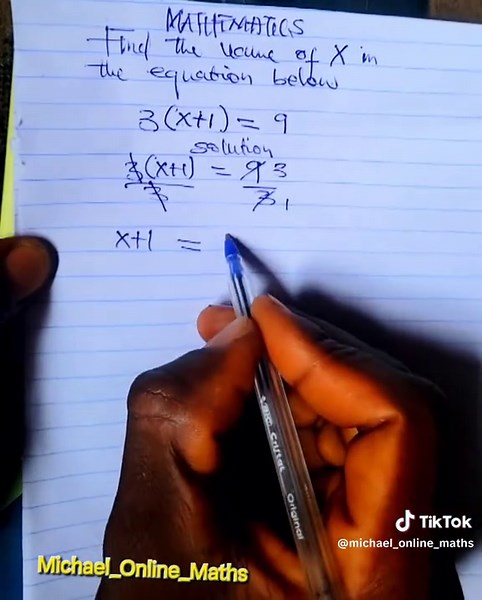 MATHEMATICS
Find the value of X in
the equation below
3(x+1) = 9
solution
3(x+1) = 9 3
3 3 1
x+1 =
Cristal Original
TikTok
@michael_online_maths
Michael_Online_Maths